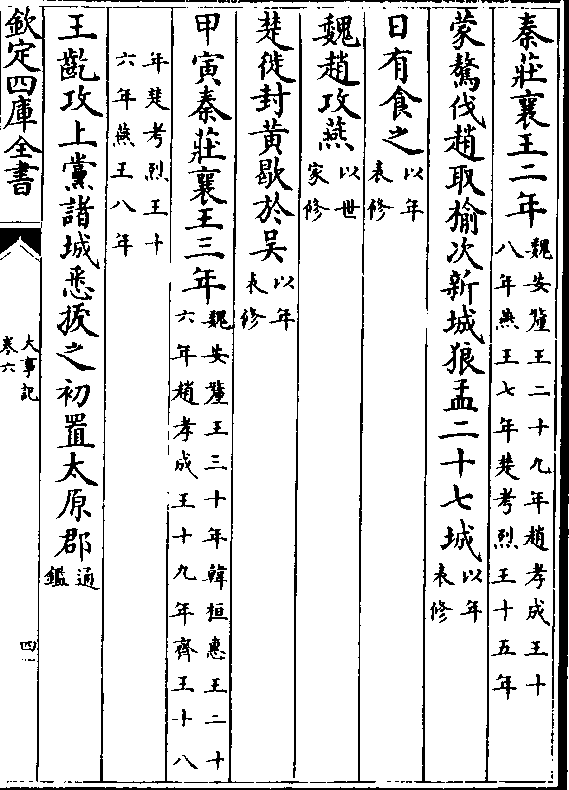 秦莊襄王二年魏安釐王二十九年趙孝成王十八年燕王七年楚考烈王十五年
蒙驁伐趙取榆次新城狼孟二十七城以年表修
日有食之以年表修
魏趙攻燕以世家修
楚徙封黃歇於吳以年表修
甲寅秦莊襄王三年魏安釐王三十年韓桓惠王二十六年趙孝成王十九年齊王十八
年楚考烈王十六年燕王八年
王齕攻上黨諸城悉拔之初置太原郡通鑑
欽定四庫全書
大事記
卷六
四